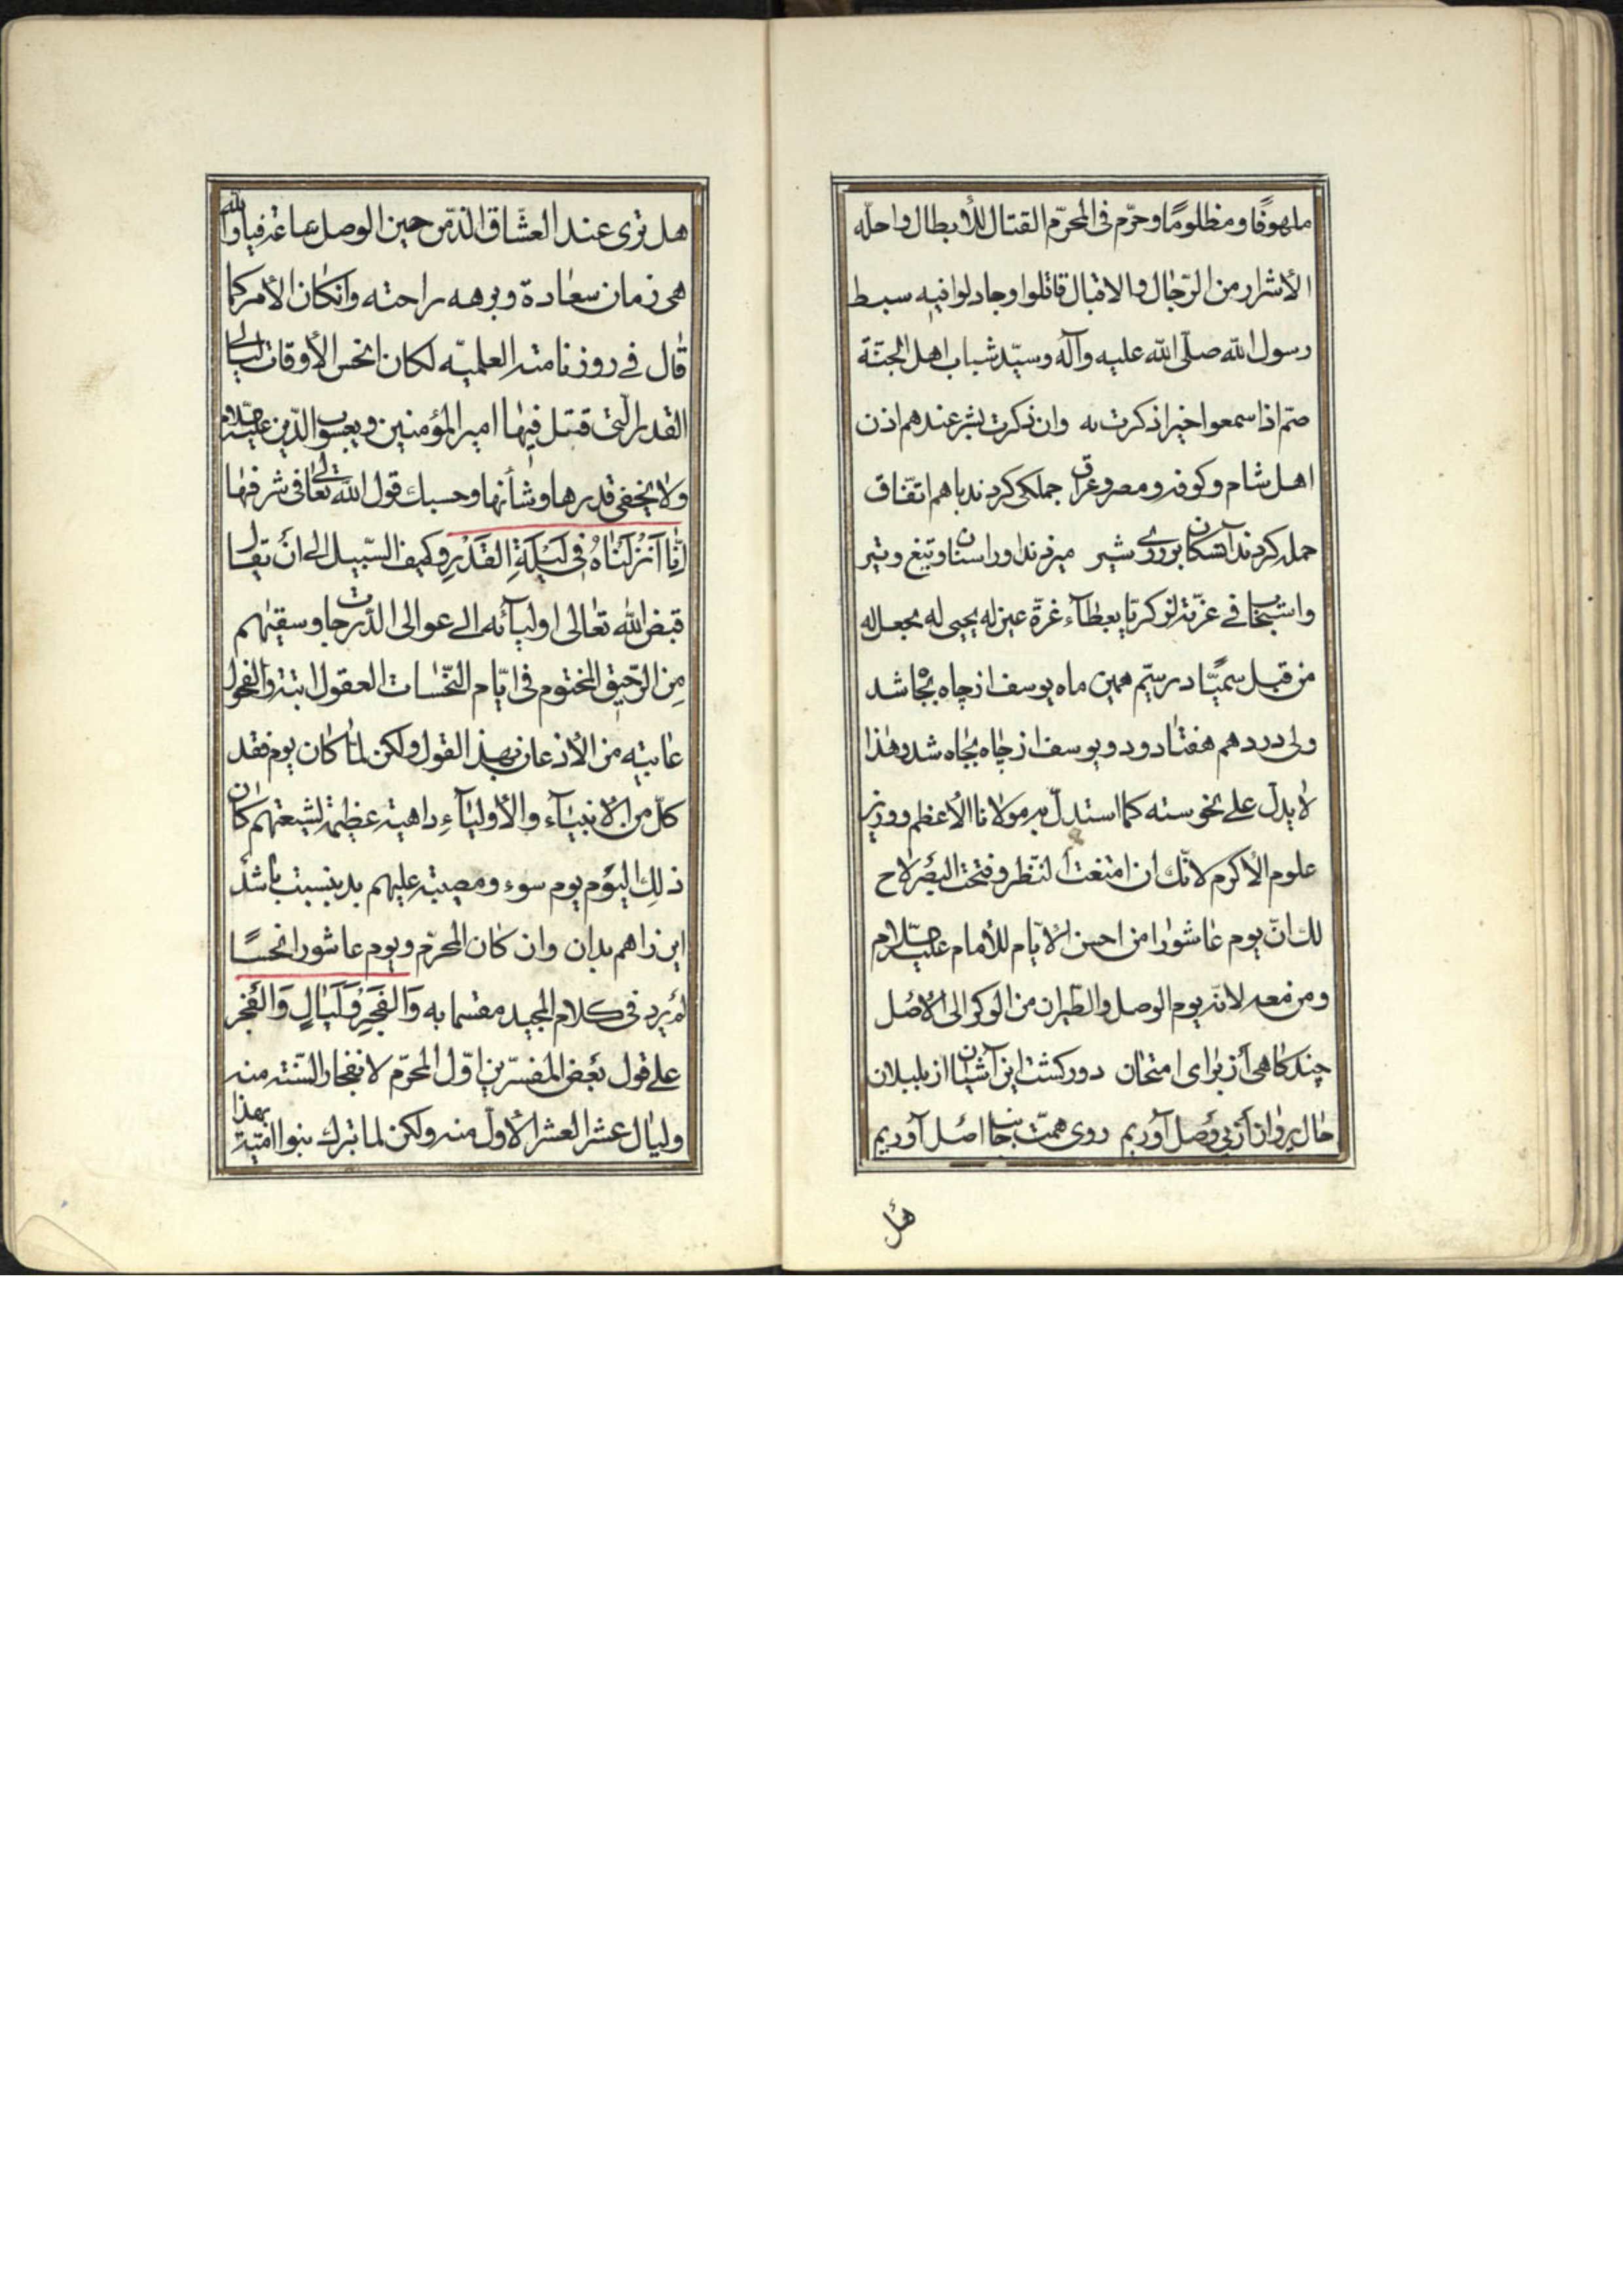 ملهوفًا ومظلومًا وحرّم فى المحرّم القتال للأبطال واحلّه
الأشرار من الرّجال والاقبال قاتلوا وجادلوا فيه سبط
رسول الله صلّى الله عليه وآله وسيّد شباب اهل الجنّة
صمّ اذا سمعوا خيرا ذكرت به وان ذكرت بشر عندهم اذن
اهل شام وكوفه ومصر وعراق جملكى كردند باهم اتّفاق
حمله كردند آنسكان بر روى شير ميزدند او را سنان وتيغ وتير
واستجاب فى غرّته لزكريّا بعطآء غرّة عين له يحيى له يجعل له
من قبل سميّا در سيّم همين ماه يوسف از چاه بجا شد
ولى در دهم هفتاد ودو يوسف از جاه بچاه شد وهٰذا
لا يدلّ على نحوسته كما استدلّ به مولانا الأعظم ووزير
علوم الأكرم لانّك ان امتعنت النّظر وفتحت البصر لاح
لك انّ يوم عاشورا من احسن الأيّام للأمام عليه السّلام
ومن معه لانّه يوم الوصل والطّيران من الوكر الى الأصل
چند كاهى از براى امتحان دور كشت اين آشيان از بلبلان
حال پرواز از پى وصل آوريم روى همّت جانب اصل آوريم
هل
هل ترى عند العشّاق الذّ من حين الوصل ساعة فيا والله
هى زمان سعادة وبرهه راحته وانكان الأمر كما
قال فى روزنامته العلميّه لكان انحس الأوقات ليالى
القدر الّتى قتل فيها امير المؤمنين ويعسوب الدّين عليه السّلام
ولا يخفى قدرها وشأنها وحسبك قول الله تعالى فى شرفها
اِنّا اَنْزَلْنَاهُ فِى لَيْلَةِ القَدْرِ وكيف السّبيل الى ان تقال
قبض الله تعالى اوليآئه الى عوالى الدّرجات وسقيهم
مِن الرّحيق المختوم فى ايّام النّحسات العقول ابته والفحول
عاتبه من الأذعان بهذ القول ولكن لمّا كان يوم فقد
كلّ من الأنبيآء والأوليآءِ داهية عظيمة لشيعتهم كان
ذلك اليوم يوم سوء ومصيبة عليهم بد بنسبت باشد
اين را هم بدان وان كان المحرّم ويوم عاشورا نحسًا
لم يرد فى كلام المجيد مقسما به وَالفَجْرِ وَلَيَالٍ وَالفَجْر
على قول بعض المفسّرين اوّل المحرّم لانفجار السّنته منه
وليال عشر العشر الأوّل منه ولكن لما تبرك بنوا اميّة بهذا